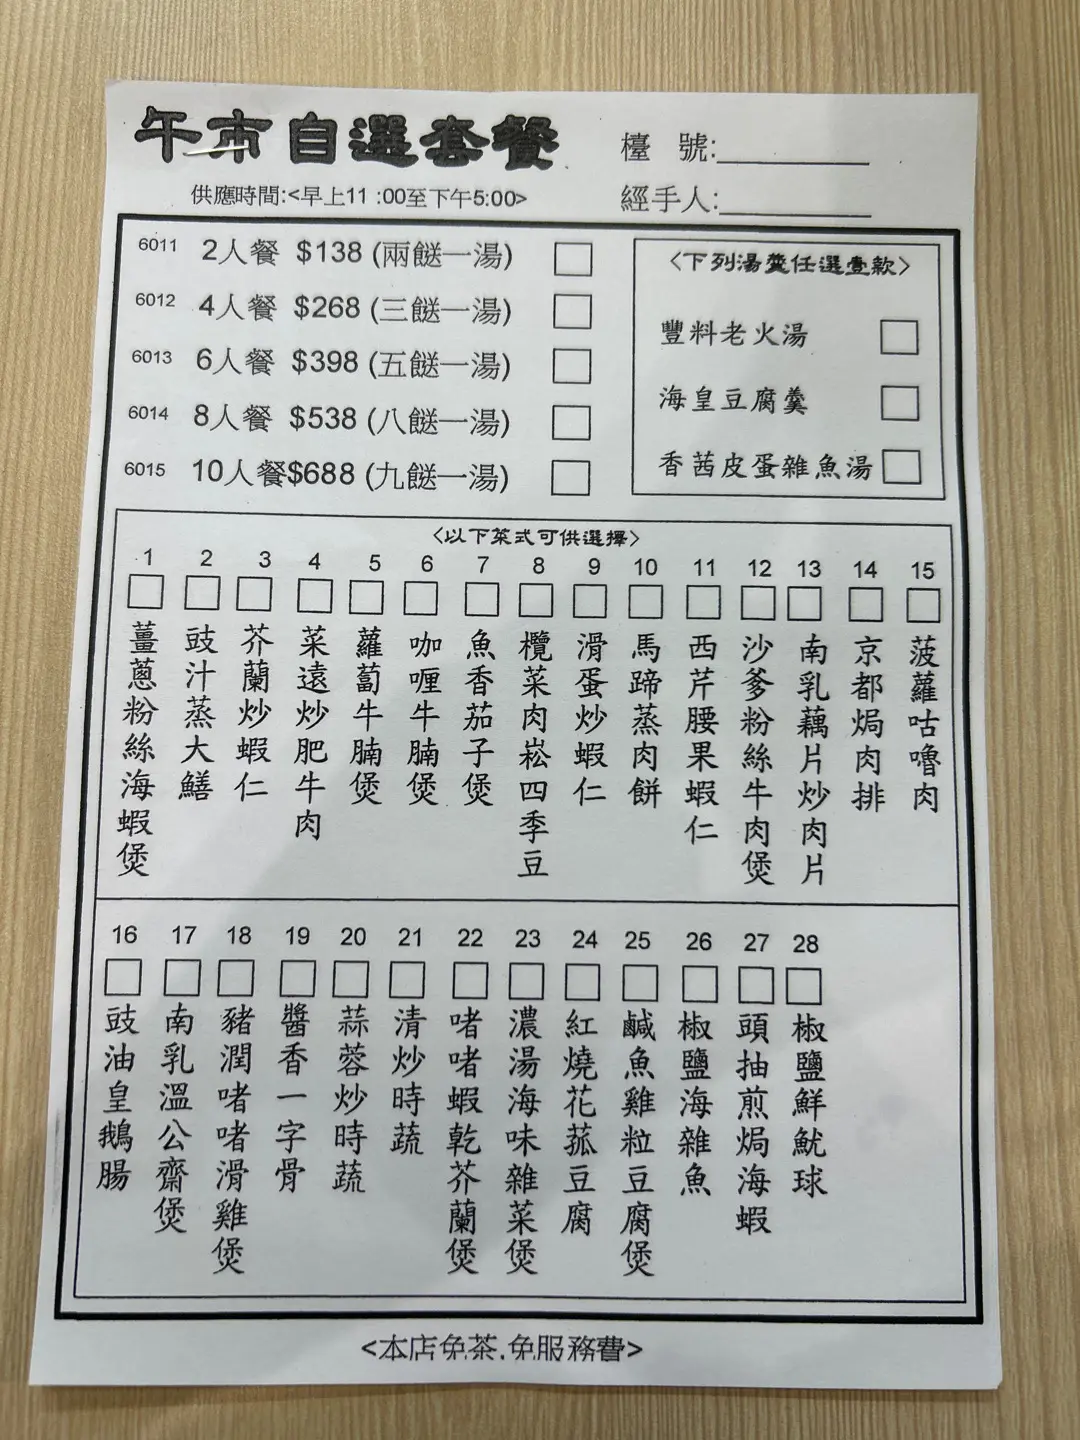 午市自選套餐
檯 號:
供應時間:<早上11 :00至下午5:00>
經手人:
6011 2人餐 $138 (兩餸一湯)
6012 4人餐 $268 (三餸一湯)
6013 6人餐 $398 (五餸一湯)
6014 8人餐 $538 (八餸一湯)
6015 10人餐$688 (九餸一湯)
<下列湯羹任選壹款>
豐料老火湯
海皇豆腐羹
香茜皮蛋雜魚湯
<以下菜式可供選擇>
1 薑蔥粉絲海蝦煲
2 豉汁蒸大鱔
3 芥蘭炒蝦仁
4 菜遠炒肥牛肉
5 蘿蔔牛腩煲
6 咖喱牛腩煲
7 魚香茄子煲
8 欖菜肉崧四季豆
9 滑蛋炒蝦仁
10 馬蹄蒸肉餅
11 西芹腰果蝦仁
12 沙爹粉絲牛肉煲
13 南乳藕片炒肉片
14 京都焗肉排
15 菠蘿咕嚕肉
16 豉油皇鵝腸
17 南乳溫公齋煲
18 豬潤啫啫滑雞煲
19 醬香一字骨
20 蒜蓉炒時蔬
21 清炒時蔬
22 啫啫蝦乾芥蘭煲
23 濃湯海味雜菜煲
24 紅燒花菰豆腐
25 鹹魚雞粒豆腐煲
26 椒鹽海雜魚
27 頭抽煎焗海蝦
28 椒鹽鮮魷球
<本店免茶,免服務費>